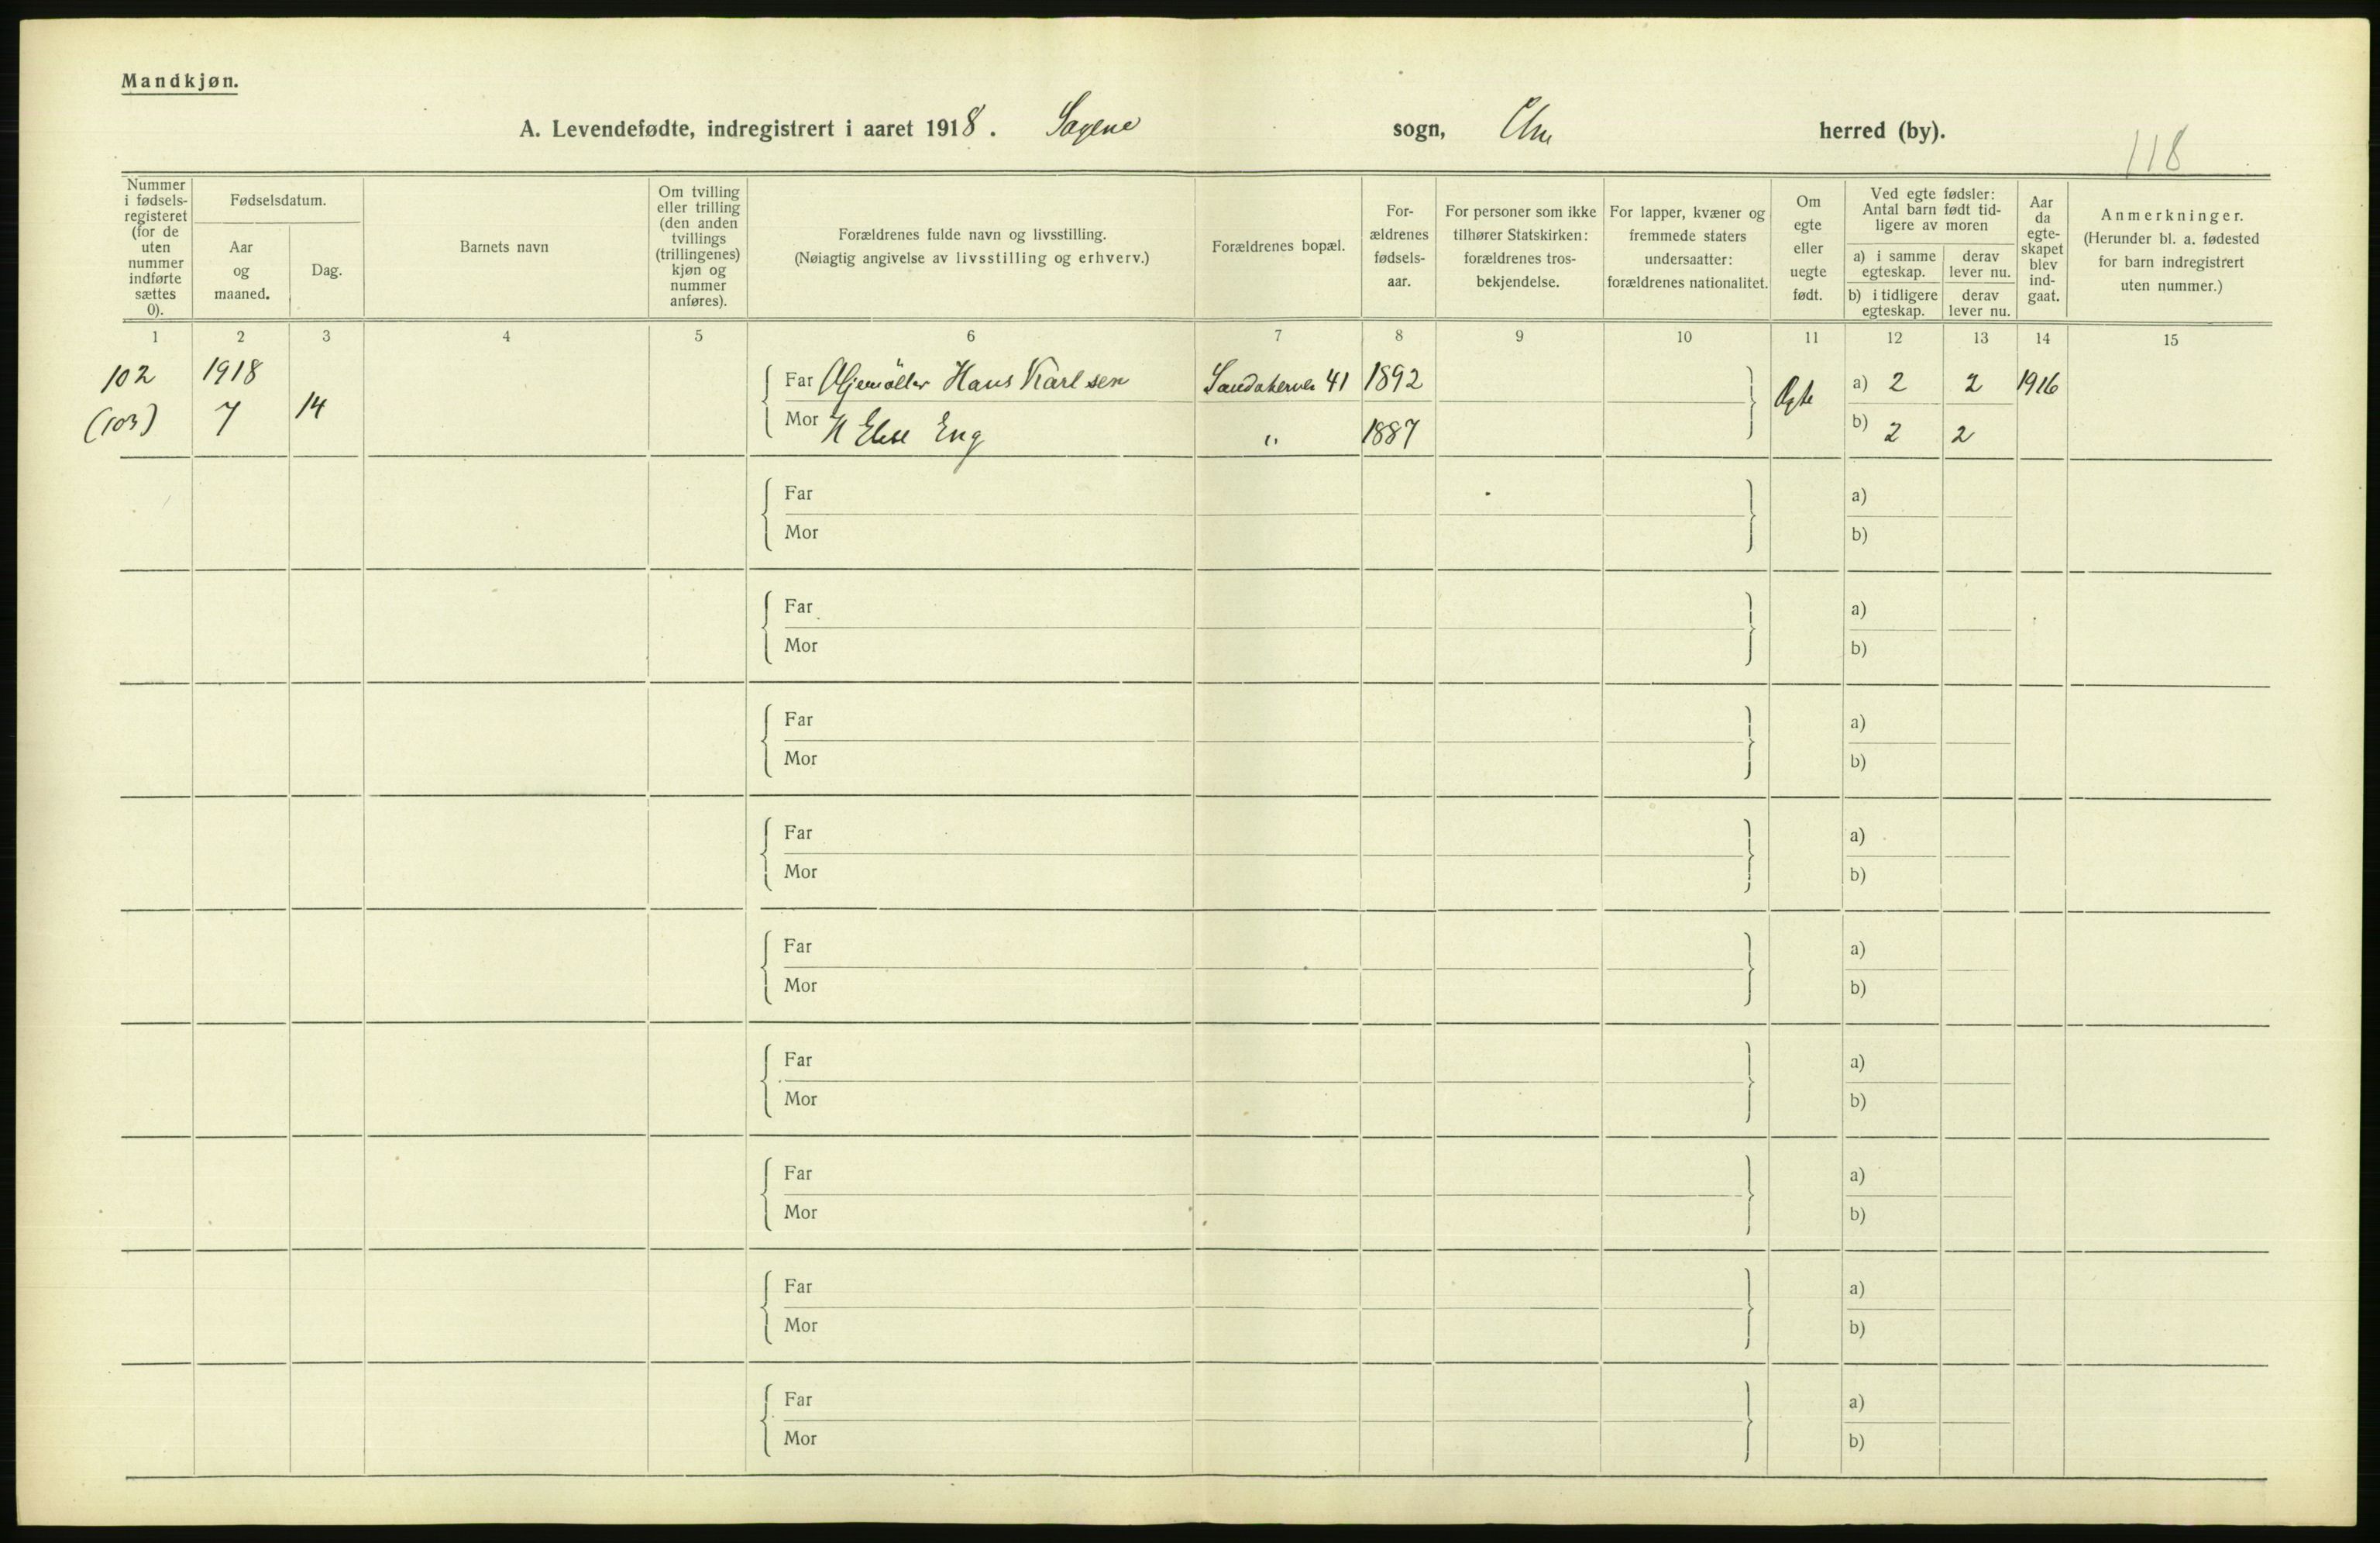 Mandkjøn.
A. Levendefødte, indregistrert i aaret 1918. Sagene sogn, Chra herred (by).
118
Nummer i fødsels-registeret (for de uten nummer indførte sættes 0).
Fødselsdatum.
Aar og maaned.
Dag.
Barnets navn
Om tvilling eller trilling (den anden tvillings (trillingenes) kjøn og nummer anføres).
Forældrenes fulde navn og livsstilling.
(Nøiagtig angivelse av livsstilling og erhverv.)
Forældrenes bopæl.
For-ældrenes fødsels-aar.
For personer som ikke tilhører Statskirken: forældrenes tros-bekjendelse.
For lapper, kvæner og fremmede staters undersaatter: forældrenes nationalitet.
Om egte eller uegte født.
Ved egte fødsler: Antal barn født tid-ligere av moren
a) i samme egteskap.
derav lever nu.
b) i tidligere egteskap.
derav lever nu.
Aar da egte-skapet blev ind-gaat.
Anmerkninger.
(Herunder bl. a. fødested for barn indregistrert uten nummer.)
1 2 3 4 5 6 7 8 9 10 11 12 13 14 15
102 1918 Far Hans Karlsen Sandakerven 41 1892 Egte a) 2 2 1916
(103) 7 14 Mor H Elise Eng " 1887 b) 2 2
Far a)
Mor b)
Far a)
Mor b)
Far a)
Mor b)
Far a)
Mor b)
Far a)
Mor b)
Far a)
Mor b)
Far a)
Mor b)
Far a)
Mor b)
Far a)
Mor b)